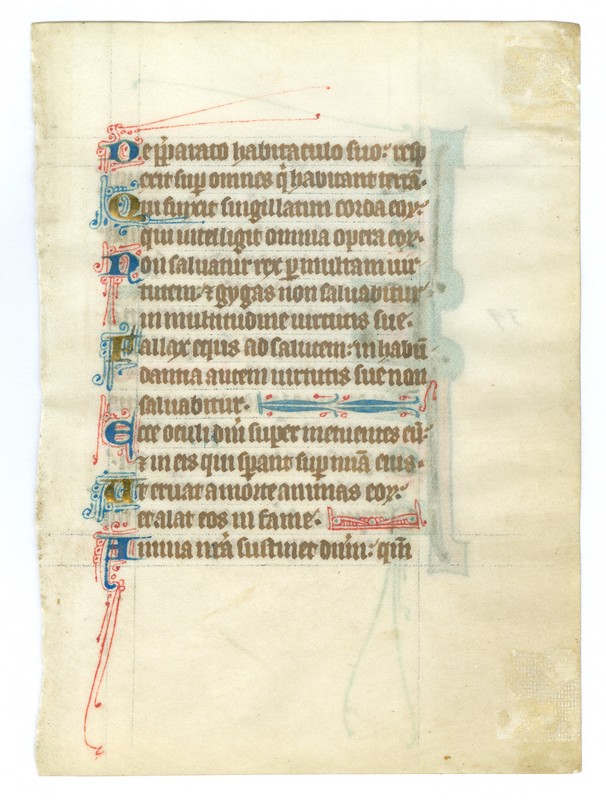 De p̄parato habitaculo suo: resp
exit sup̄ omnes q̇ habitant terrā.
Qui finxit singillatim corda eoꝝ:
qui intelligit omnia opera eoꝝ.
Non saluatur rex ꝑ multam uir
tutem: ⁊ gygas non saluabitur
in multitudine uirtutis sue.
Fallax equs ad salutem: in habū
dantia autem uirtutis sue non
saluabitur.
Ecce oculi dn̄i super metuentes eū:
⁊ in eis qui sp̄ant sup̄ mīam eius.
Ut eruat a morte animas eoꝝ:
et alat eos in fame.
Anima nr̄a sustinet dn̄m: qm̄